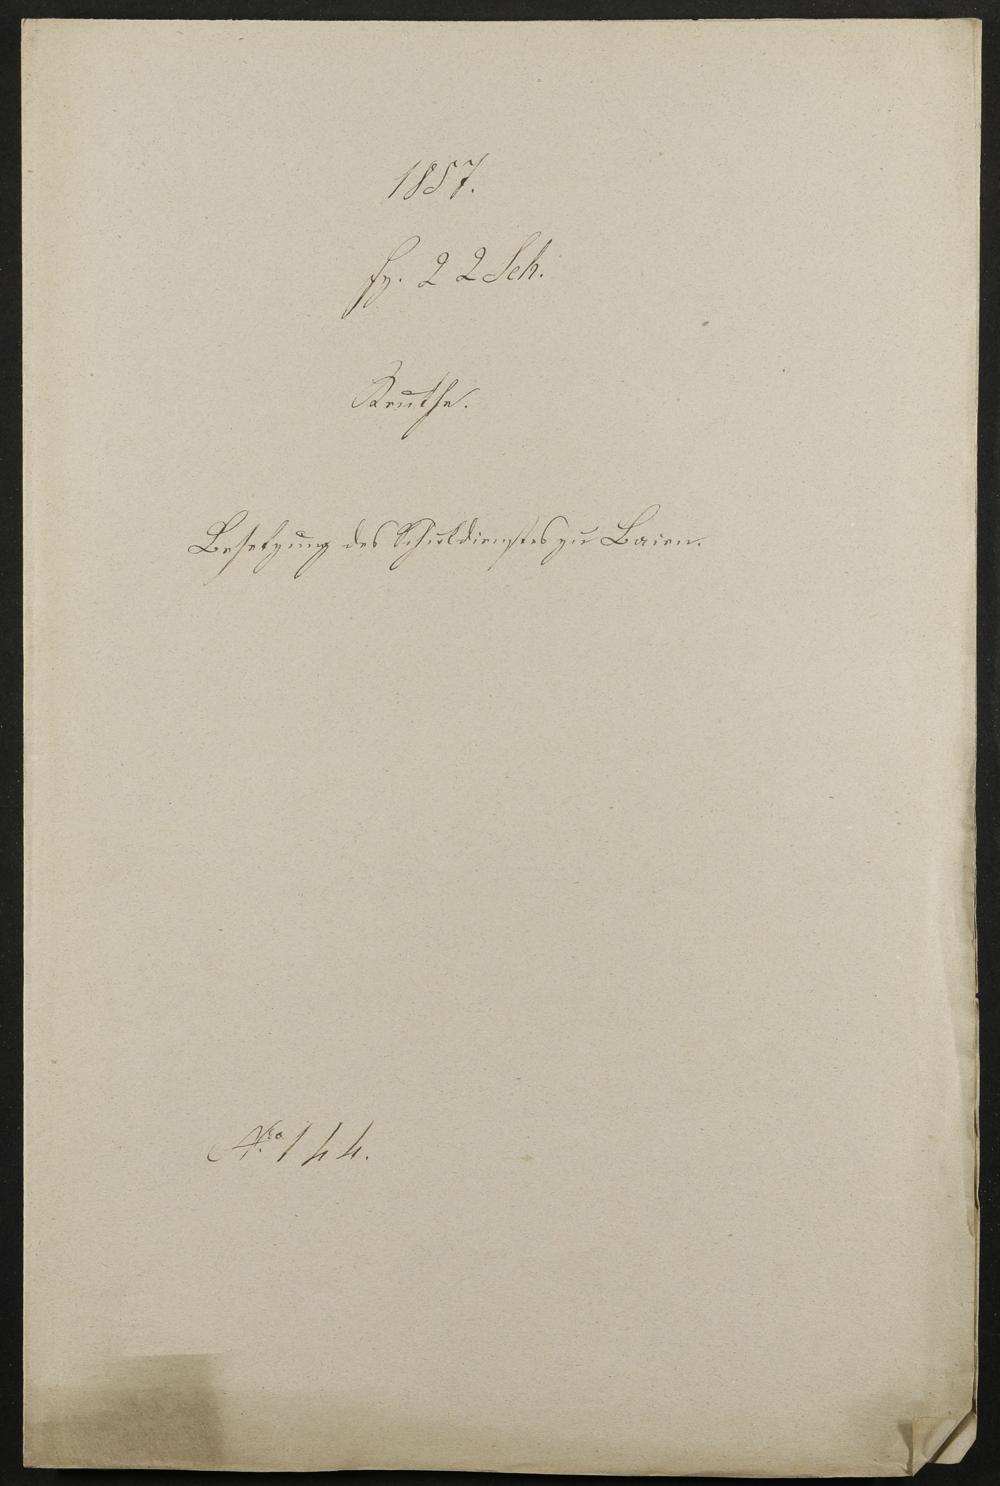 1857.
Fz. 22 Sch.
Kruthe.
Besetzung des Schuldienstes zu Baien.
Nro 144.